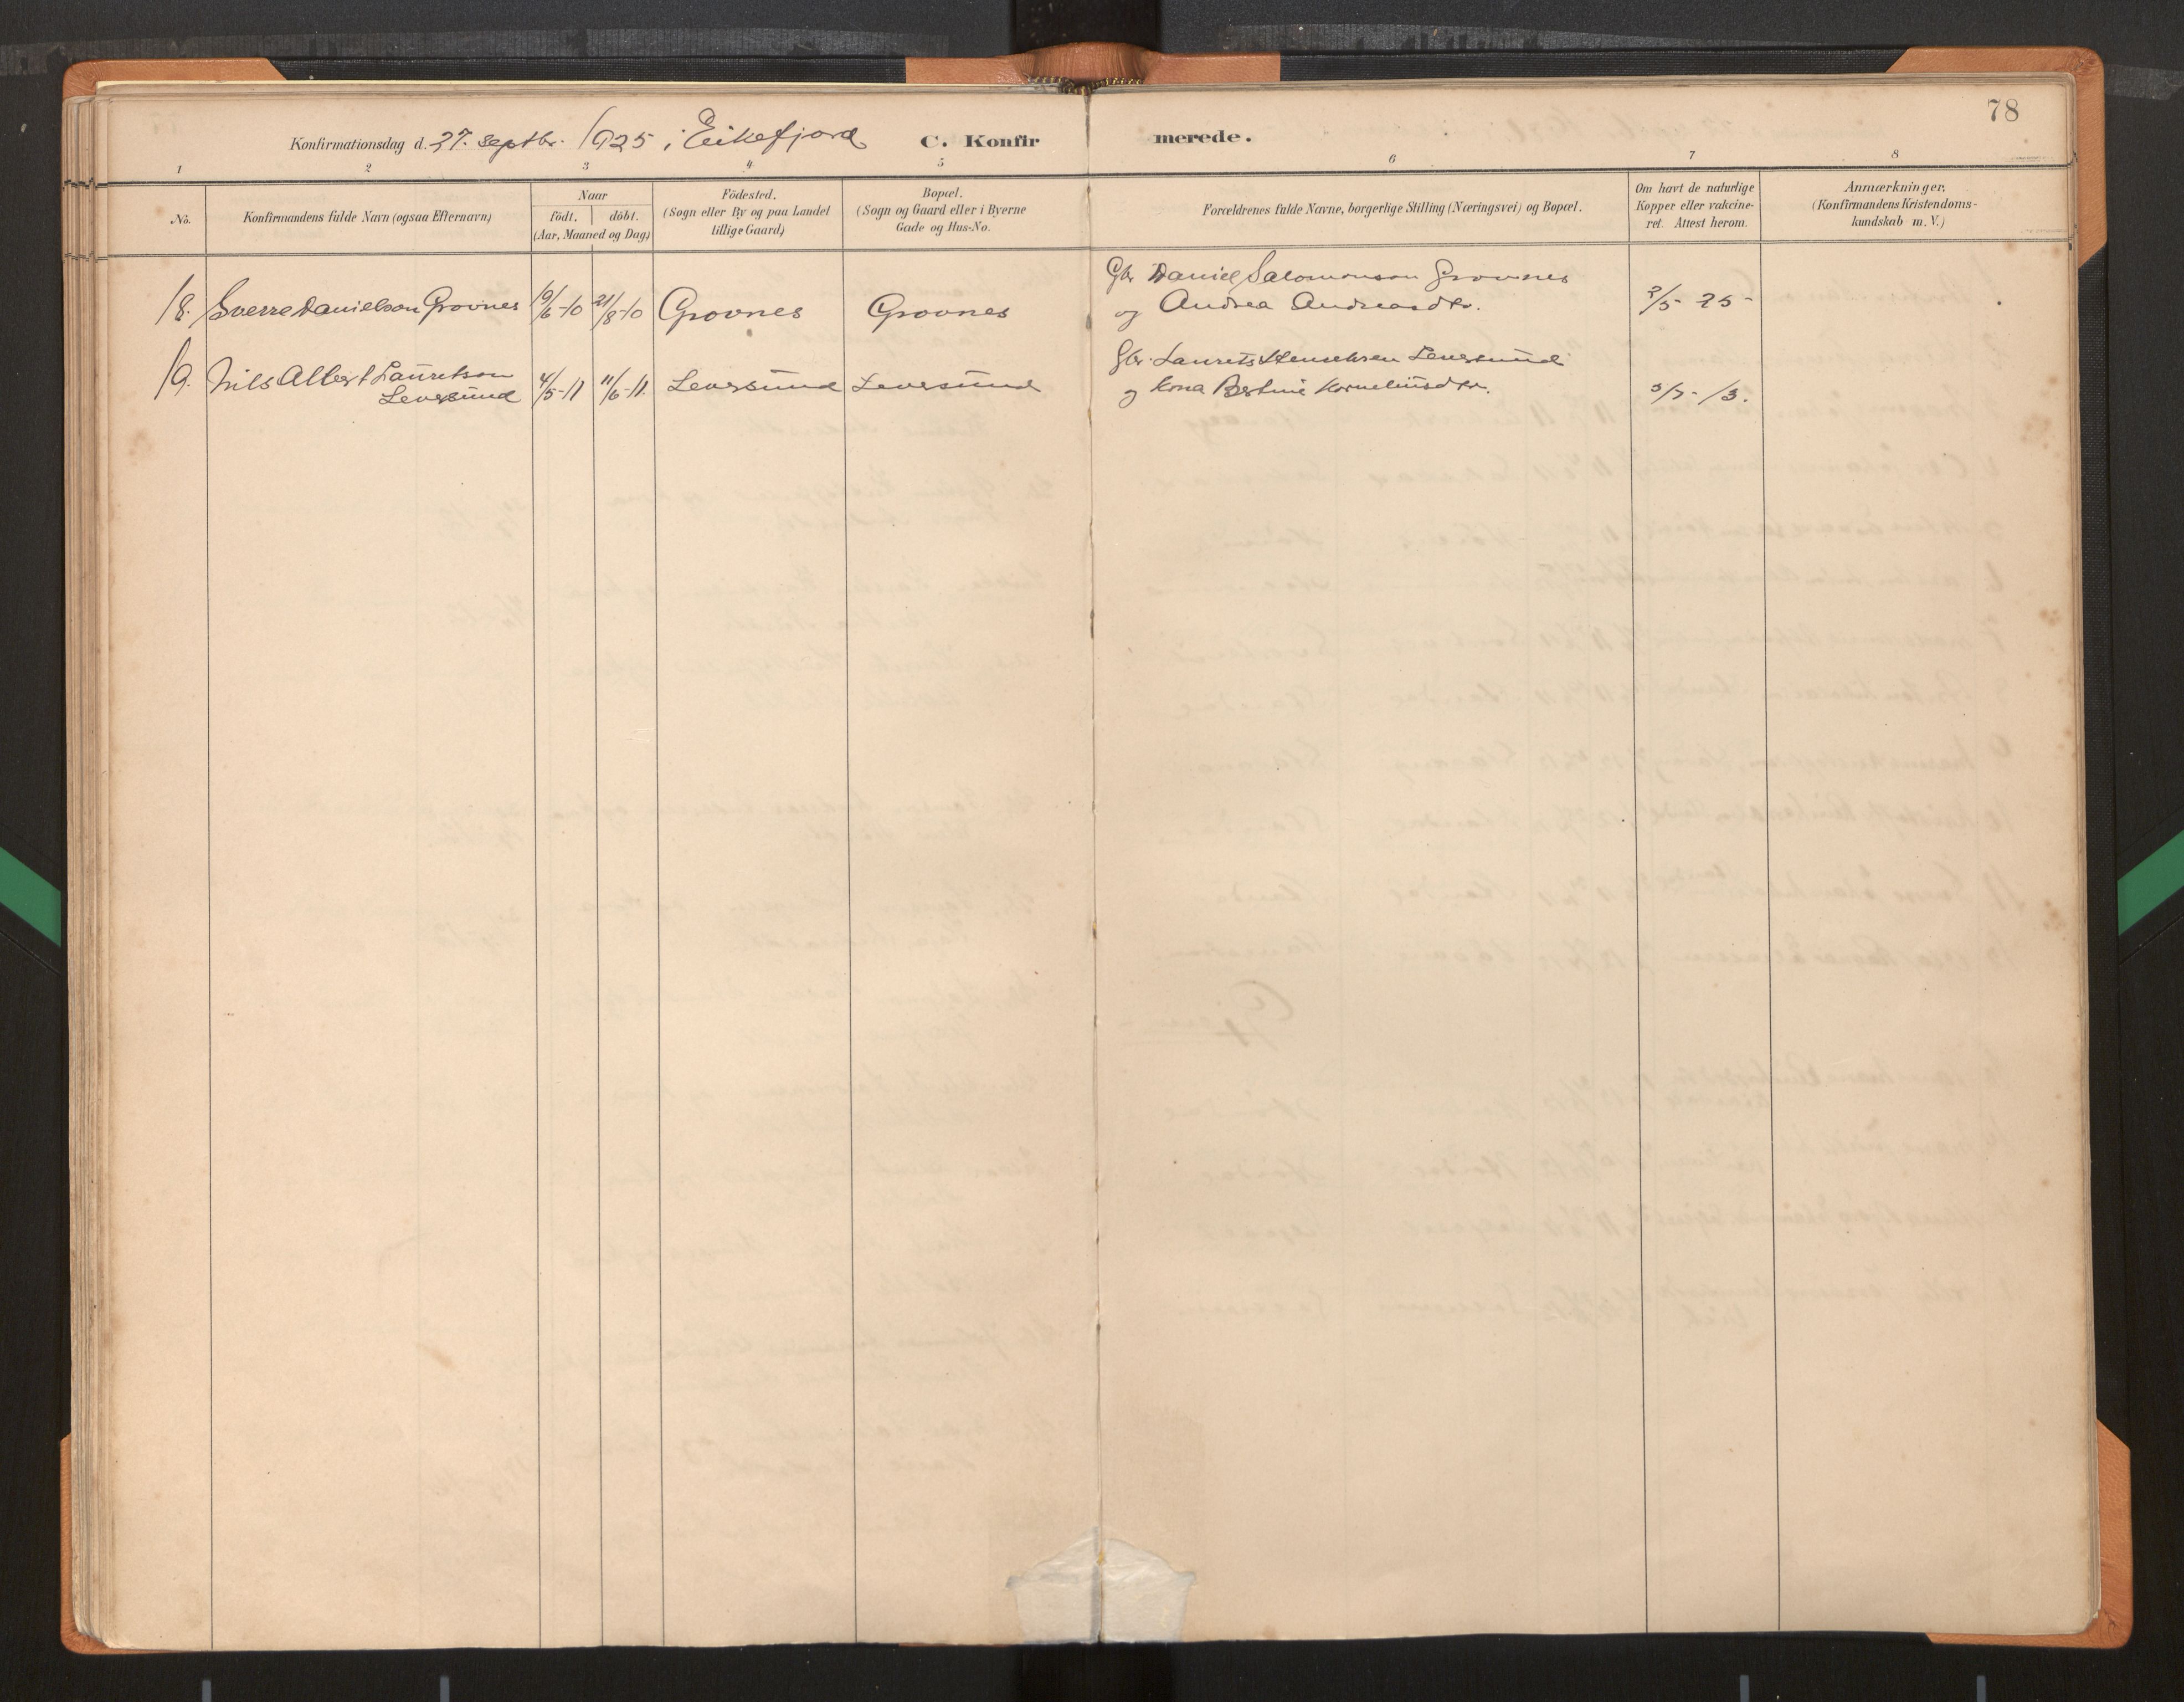 78
Konfirmationsdag d. 27. septbr. 1925 i Eikefjord C. Konfirmerede.
1 2 3 4 5 6 7 8
No. Konfirmandens fulde Navn (ogsaa Efternavn) Naar födt. döbt. (Aar, Maaned og Dag) Födested. (Sogn eller By og paa Landet tillige Gaard) Bopæl. (Sogn og Gaard eller i Byerne Gade og Hus-No. Forældrenes fulde Navne, borgerlige Stilling (Næringsvei) og Bopæl. Om havt de naturlige Kopper eller vakcineret. Attest herom. Anmærkninger. (Konfirmandens Kristendomskundskab m. V.)
Gbr Daniel Salomonson Grovnes
18. Sverre Danielson Grovnes 19/6-10 21/8-10 Grovnes Grovnes og Andrea Andreasdtr. 2/5-25-
Gbr. Laurits Levesund
19. Nils Albert Lauritson Levesund 4/5-11 11/6-11. Levesund Levesund og kona Bertine Korneliusdtr. 5/7-13.